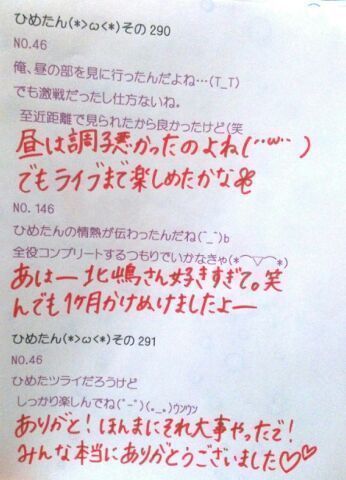 ひめたん(*>ω<*)その290
NO.46
俺、昼の部を見に行ったんだよね…(T_T)
でも激戦だったし仕方ないね。
至近距離で見られたから良かったけど(笑
昼は調子悪かったのよね(´･ω･｀)
でもライブまで楽しめたかな
NO. 146
ひめたんの情熱が伝わったんだね(^_^)b
全役コンプリートするつもりでいかなきゃ(*⌒▽⌒*)
あはー北嶋さん好きすぎて。笑
んでも1ヶ月かけぬけましたよー
ひめたん(*>ω<*)その291
NO.46
ひめたツライだろうけど
しっかり楽しんでね(ﾟｰﾟ)(。_。)ｳﾝｳﾝ
ありがと!ほんまにそれ大事やったで!
みんな本当にありがとうございました♡♡